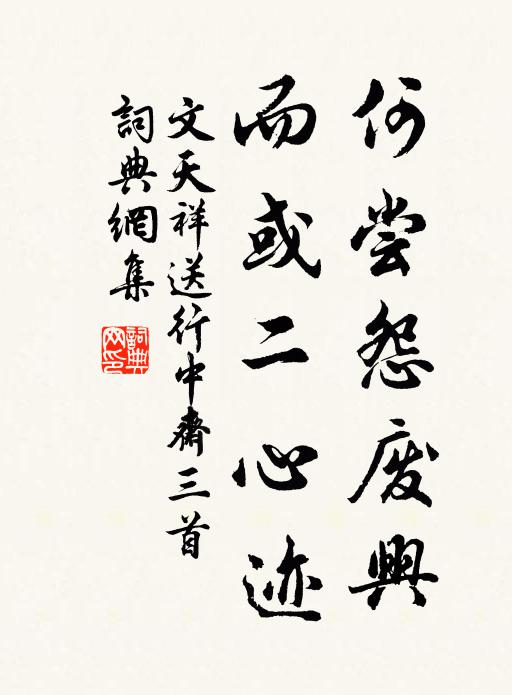 何尝怨废興
而或二心迹
文天祥送行中齋三首
詞典網集
詞典网印